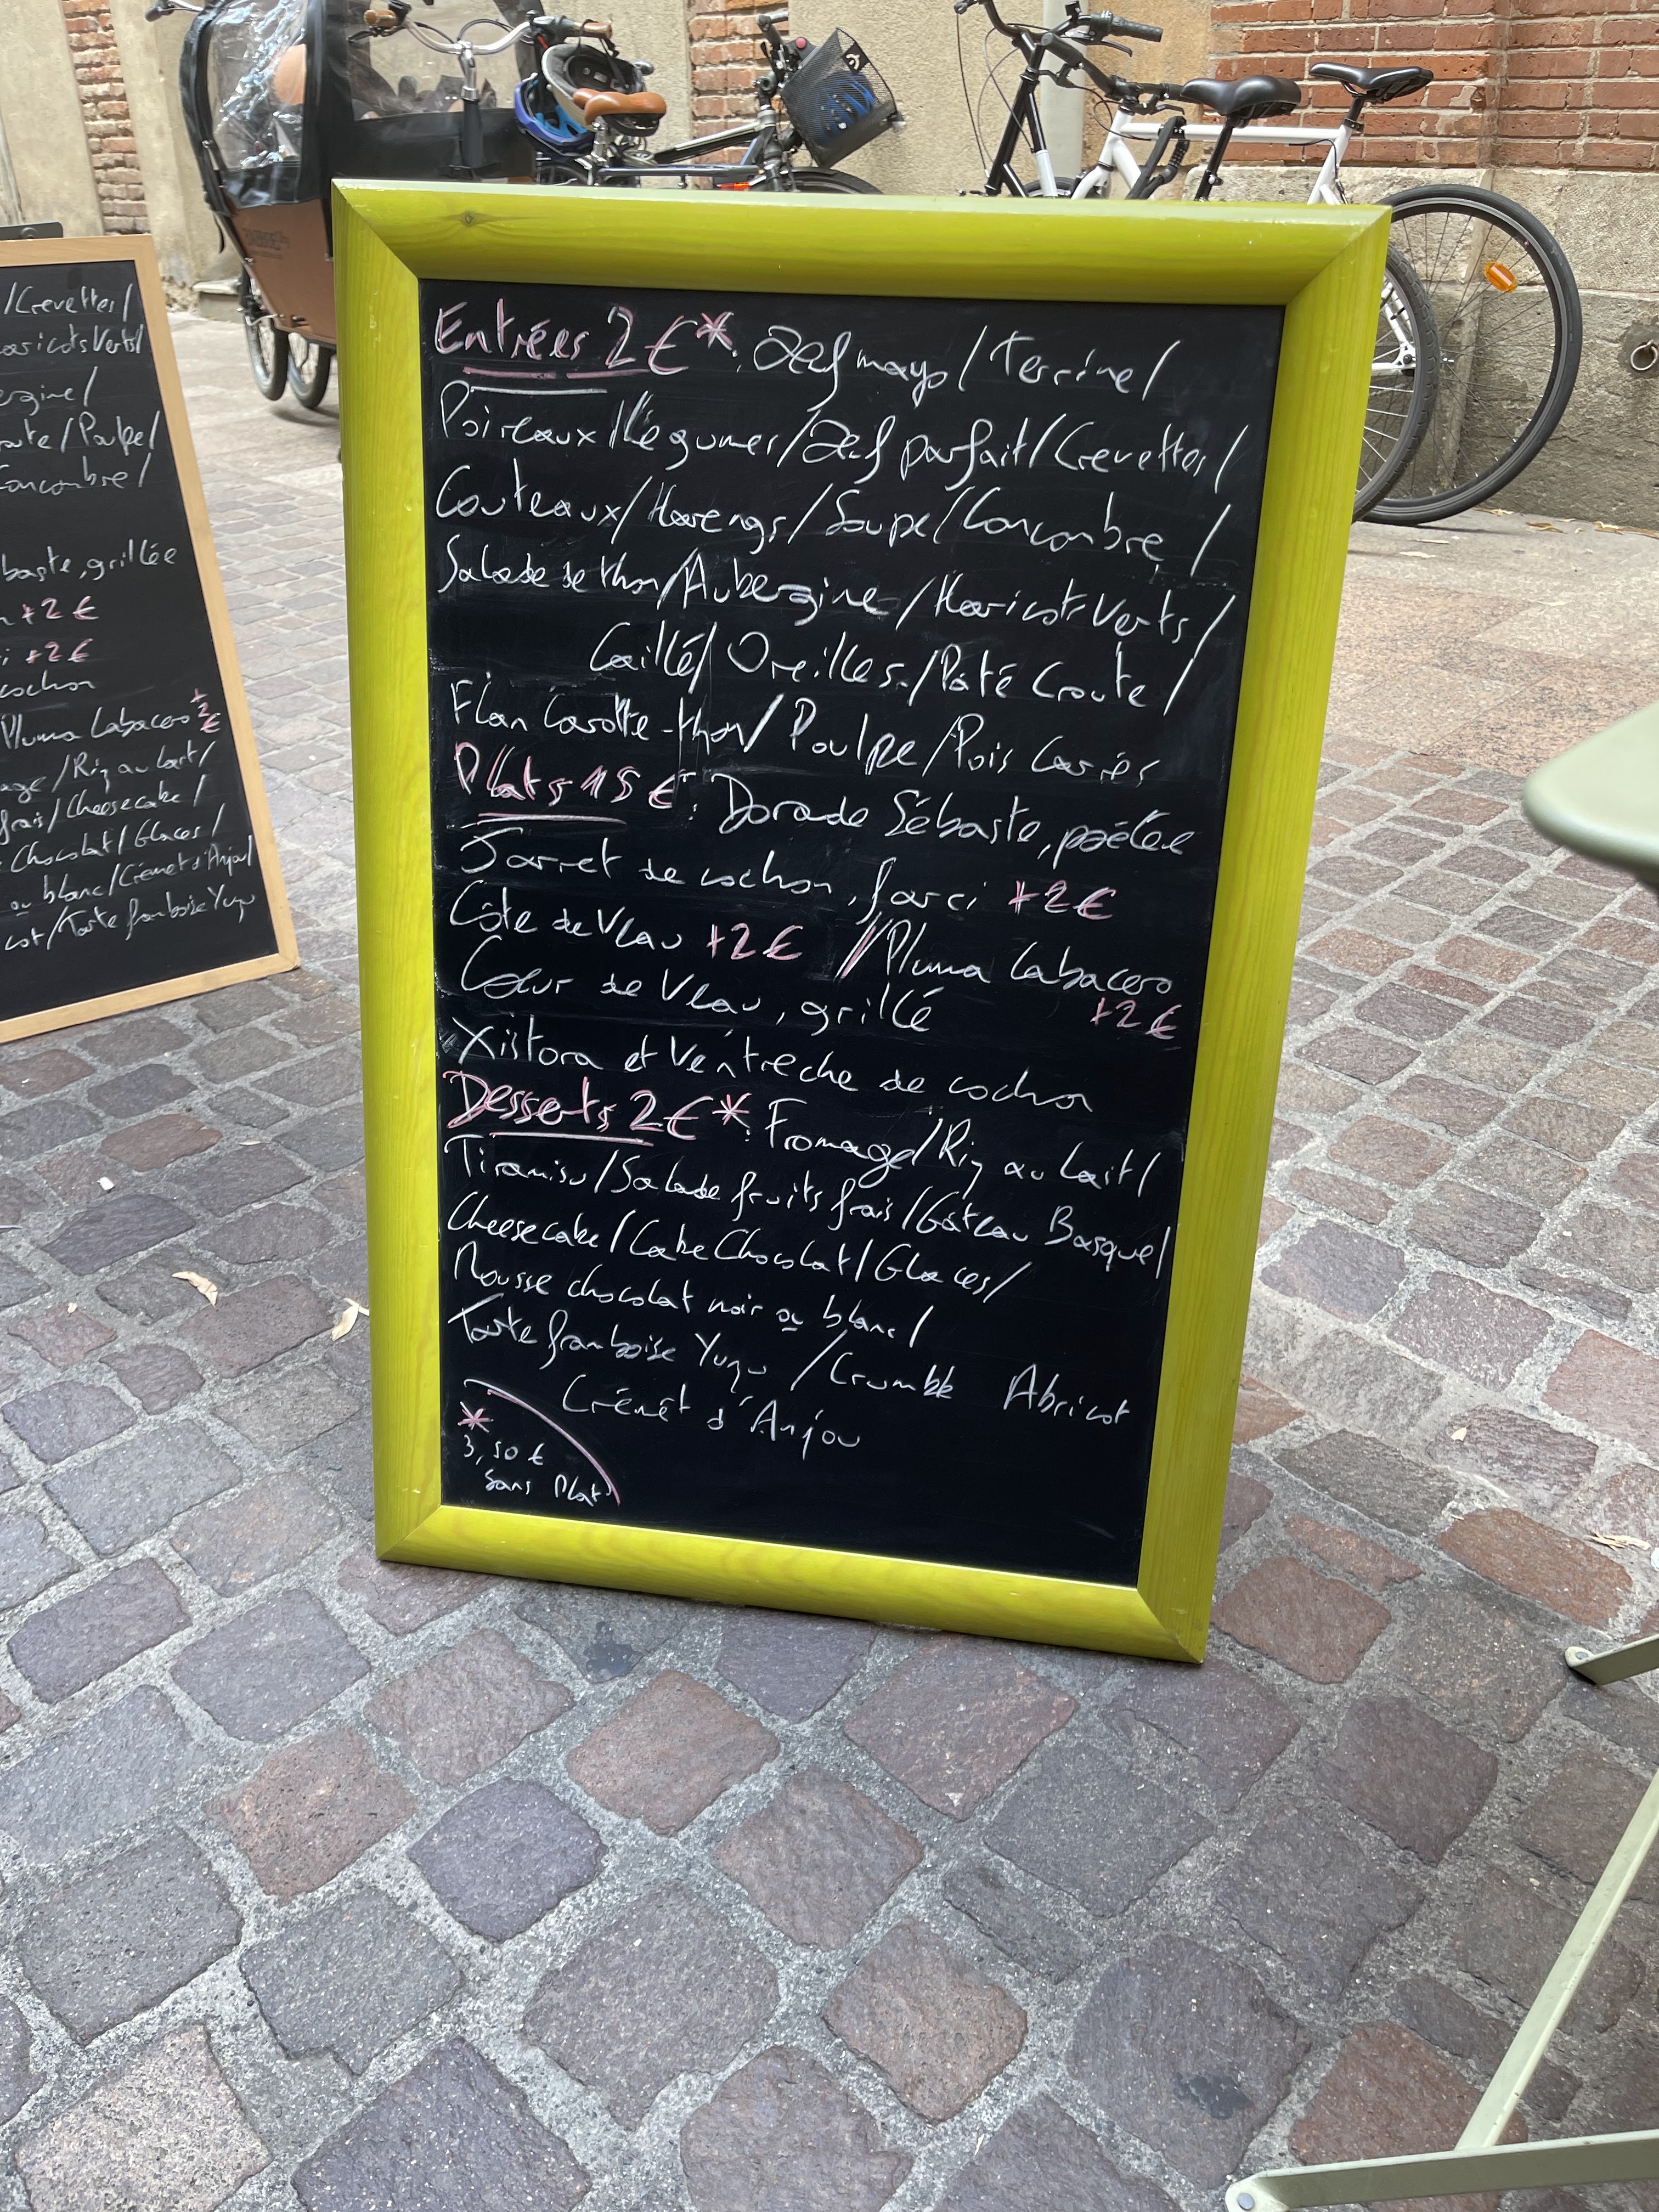 /Crevettes/
aricots Verts/
ergine/
oute/Poulpe/
Concombre/
baste, grillée
+2€
i +2€
cochon
Pluma Labacero +2€
age/Riz au Lait/
frais/Cheesecake/
Chocolat/Glaces/
ou blanc/Crémet d'Anjou/
cot/Tarte framboise Yuzu
Entrées 2€*: Œuf mayo/Terrine/
Poireaux/Légumes/Œuf parfait/Crevettes/
Couteaux/Harengs/Soupe/Concombre/
Salade de thon/Aubergine/Haricots Verts/
Caillé/Oreilles/Pâté Croute/
Flan Carotte-thon/Poulpe/Pois Carrés
Plats 15€: Dorade Sébaste, poêlée
Jarret de cochon, farci +2€
Côte de Veau +2€ //Pluma Labacero
+2€
Cœur de Veau, grillé
Xistora et Ventrèche de cochon
Desserts 2€*: Fromage/Riz au Lait/
Tiramisu/Salade fruits frais/Gâteau Basque/
Cheesecake/Cake Chocolat/Glaces/
Mousse chocolat noir ou blanc/
Tarte framboise Yuzu/Crumble Abricot
Crémêt d'Anjou
*
3,50€
Sans Plat